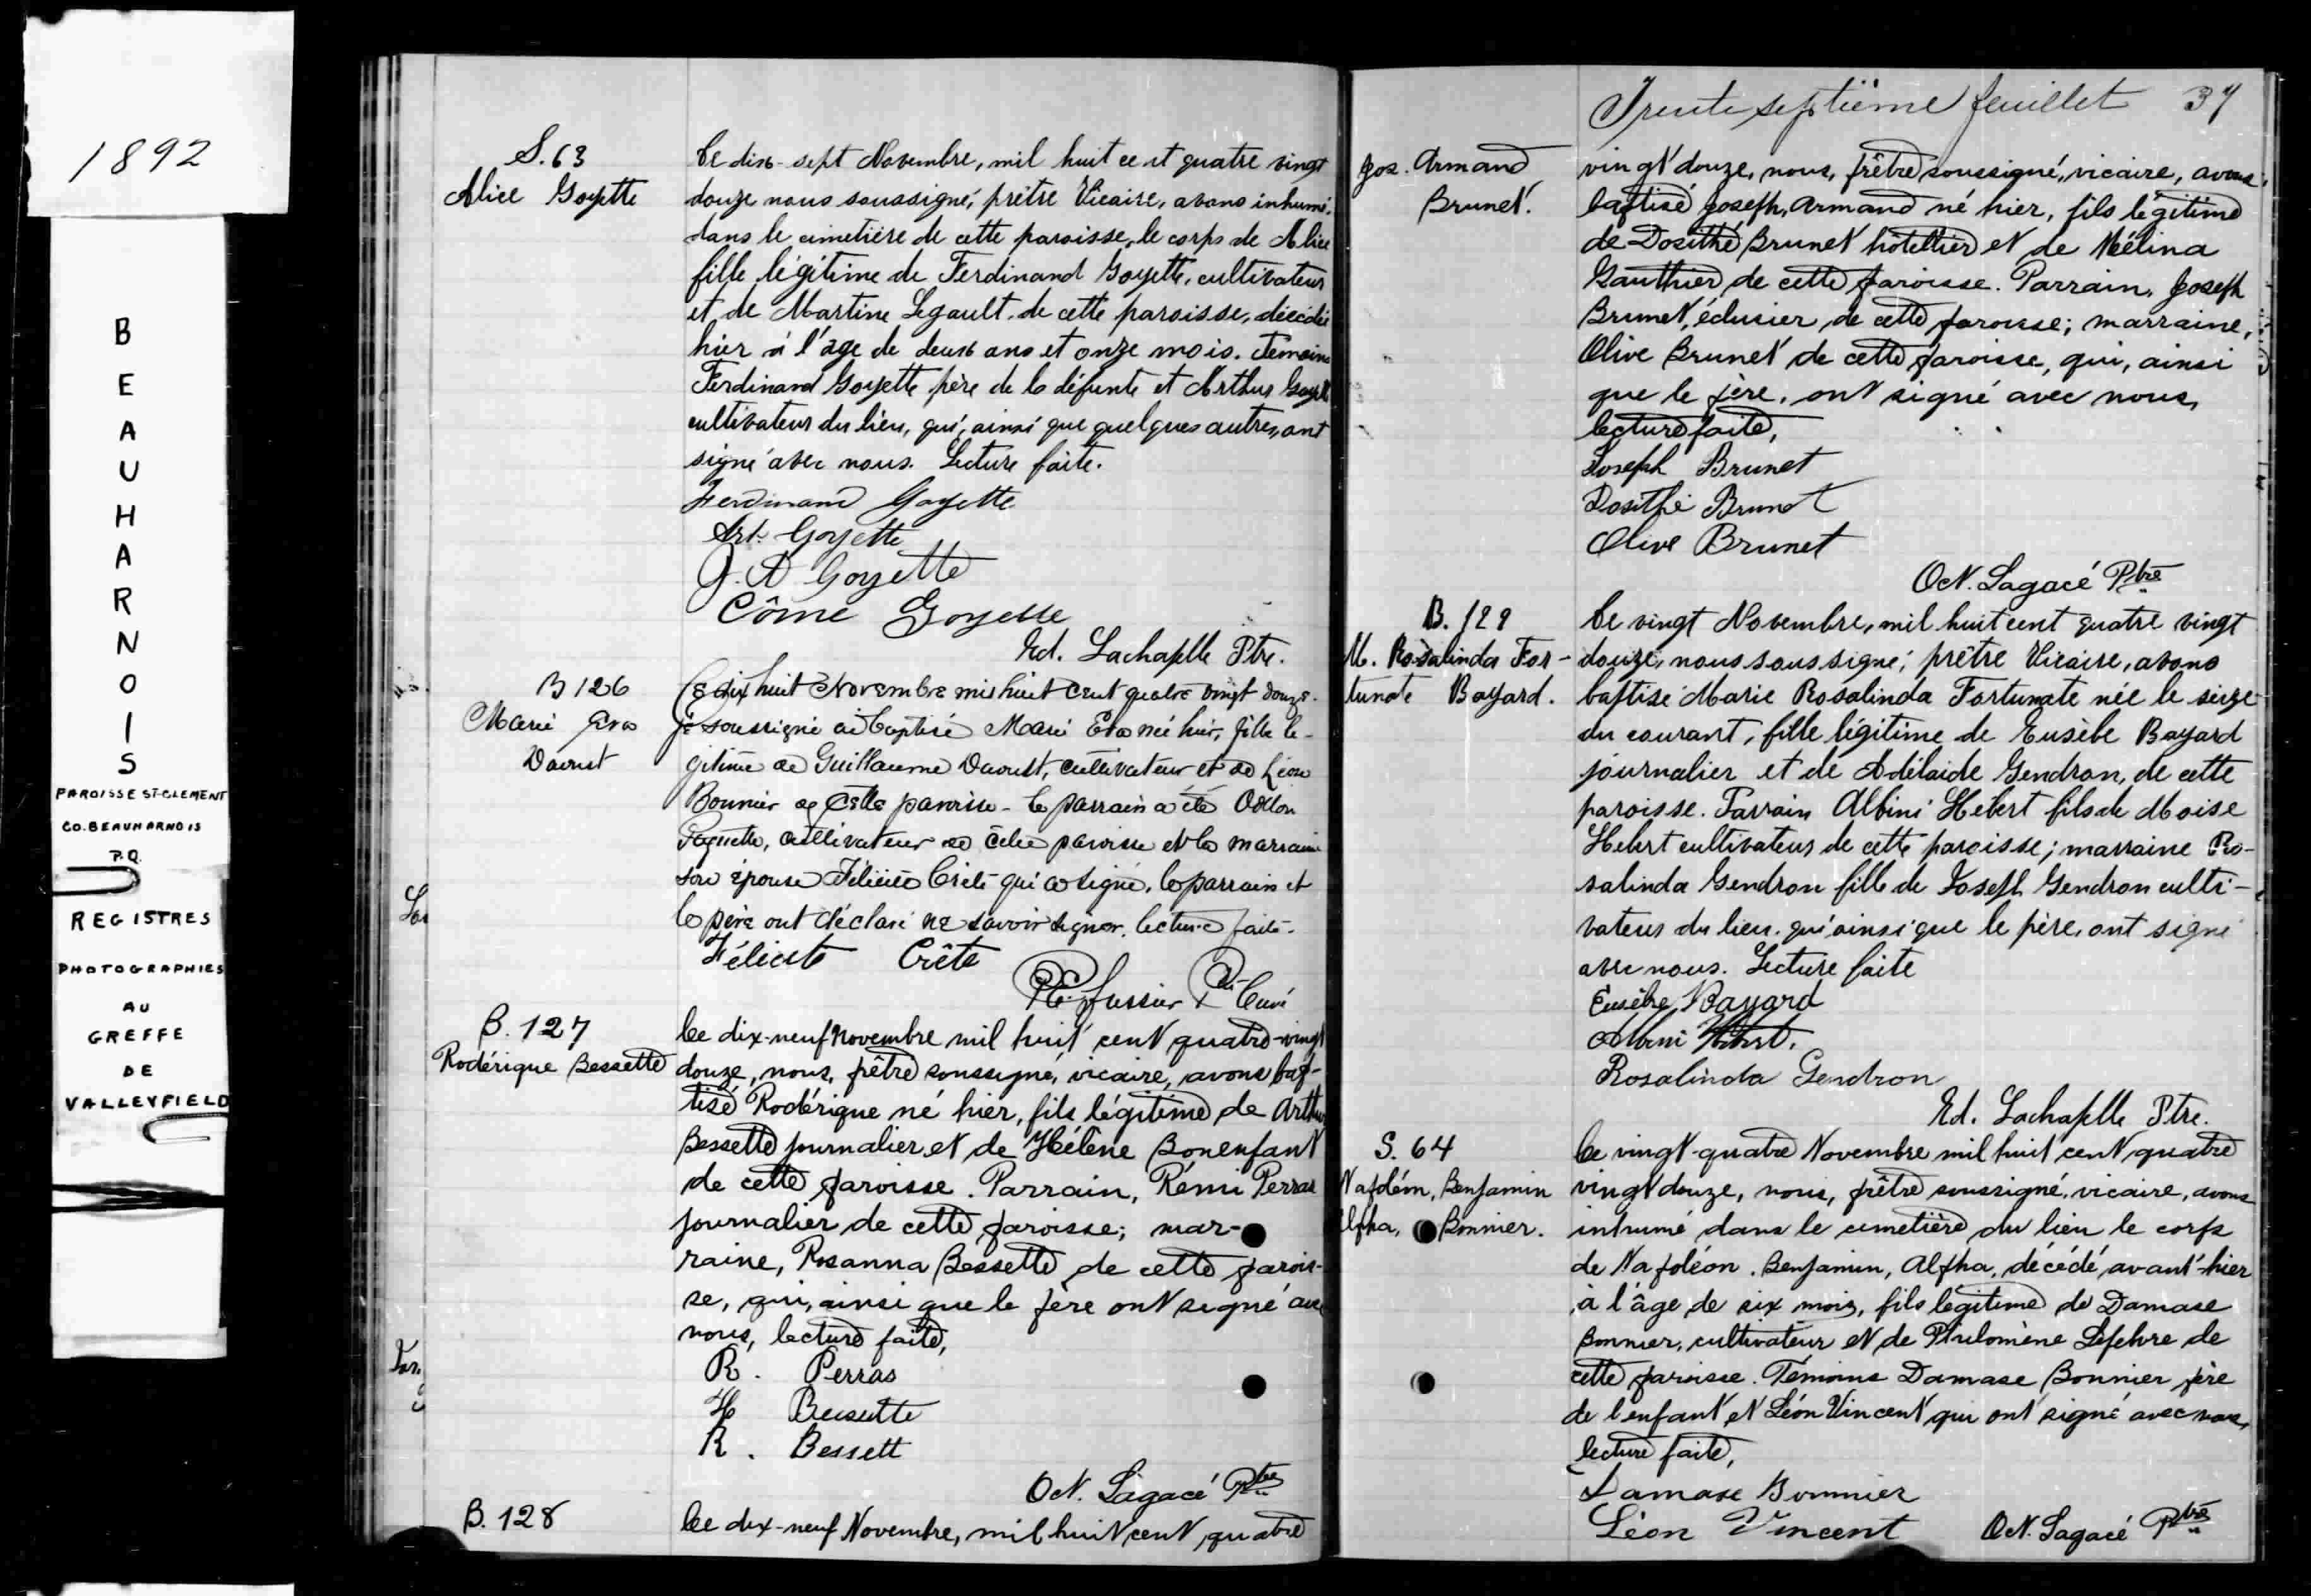 1892
BEAUHARNOIS
PAROISSE ST-CLEMENT
CO. BEAUHARNOIS
P.Q.
REGISTRES
PHOTOGRAPHIES
AU
GREFFE
DE
VALLEYFIELD
S. 63
Alice Goyette
Le dix-sept Novembre, mil huit cent quatre vingt
douze nous soussigné, prêtre Vicaire, avons inhumé
dans le cimetière de cette paroisse, le corps de Alice
fille légitime de Ferdinand Goyette, cultivateur
et de Martine Legault de cette paroisse, décédée
hier à l'âge de deux ans et onze mois. Témoins
Ferdinand Goyette père de la défunte et Arthur Goyette
cultivateur du lieu, qui, ainsi que quelques autres, ont
signé avec nous. Lecture faite.
Ferdinand Goyette
Art. Goyette
J. A Goyette
Côme Goyette
Ed. Lachapelle Ptre.
B 126
Marie Eva
Daoust
Le dix huit Novembre mil huit cent quatre vingt douze
je soussigné ai baptisé Marie Eva née hier, fille lé-
gitime de Guillaume Daoust, cultivateur et de Léon
Bonnier de cette paroisse - le parrain a été Odilon
Paquette, cultivateur de cette paroisse et la marraine
son épouse Félicité Crête qui a signé, le parrain et
le père ont déclaré ne savoir signer. lecture faite -
Félicité Crête
Ptre Curé
B. 127
Rodérique Bessette
Le dix-neuf Novembre mil huit cent quatre-vingt
douze, nous, prêtre soussigné, vicaire, avons bap-
tisé Rodérique né hier, fils légitime de Arthur
Bessette journalier et de Hélène Bonenfant
de cette paroisse. Parrain, Rémi Perras
journalier de cette paroisse; mar-
raine, Rosanna Bessette de cette parois-
se, qui, ainsi que le père ont signé avec
nous, lecture faite,
R. Perras
H Bessette
R. Bessett
O N. Lagacé Ptre
B. 128
Le dix-neuf Novembre, mil huit cent quatre
Trente septième feuillet 37
Jos. Armand
Brunet.
vingt douze, nous, prêtre soussigné, vicaire, avons
baptisé Joseph, Armand né hier, fils légitime
de Dosithé Brunet hôtellier et de Mélina
Gauthier de cette paroisse. Parrain, Joseph
Brunet, éclusier de cette paroisse; marraine,
Olive Brunet de cette paroisse, qui, ainsi
que le père, ont signé avec nous,
lecture faite,
Joseph Brunet
Dosithé Brunet
Olive Brunet
O N. Lagacé Ptre
B. 129
M. Rosalinda For-
tunate Bayard.
Le vingt Novembre, mil huit cent quatre vingt
douze, nous soussigné, prêtre Vicaire, avons
baptisé Marie Rosalinda Fortunate née le seize
du courant, fille légitime de Eusèbe Bayard
journalier et de Adélaide Gendron, de cette
paroisse. Parrain Albini Hebert fils de Moise
Hebert cultivateur de cette paroisse; marraine Ro-
salinda Gendron fille de Joseph Gendron culti-
vateur du lieu. qui ainsi que le père, ont signé
avec nous. Lecture faite
Eusèbe Bayard
Albini Hebert.
Rosalinda Gendron
Ed. Lachapelle Ptre.
S. 64
Napoléon, Benjamin
Alpha, Bonnier.
Le vingt-quatre Novembre mil huit cent quatre
vingt douze, nous, prêtre soussigné, vicaire, avons
inhumé dans le cimetière du lieu le corps
de Napoléon, Benjamin, Alpha, décédé avant-hier
à l'âge de six mois, fils légitime de Damase
Bonnier, cultivateur et de Philomène Lefebvre de
cette paroisse. Témoins Damase Bonnier père
de l'enfant et Léon Vincent qui ont signé avec nous,
lecture faite,
Damase Bonnier
Léon Vincent
O N. Lagacé Ptre